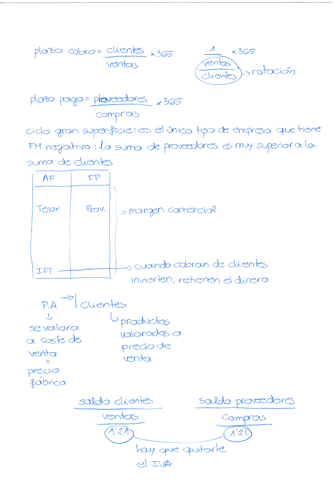 plazo cobro = clientes / ventas × 365    1 / (ventas / clientes) × 365 → rotación
plazo pago = proveedores / compras × 365
ciclo gran superficie: es el único tipo de empresa que tiene
FM negativo: la suma de proveedores es muy superior a la
suma de clientes
AF FP
Tesor Prov. → margen comercial
IFT → cuando cobran de clientes
invierten, retienen el dinero
P.A → clientes
↓ se valora a coste de venta
↓ productos valorados a precio de venta
precio
fábrica
saldo clientes saldo proveedores
ventas compras
1'21 1'21
hay que quitarle
el IVA